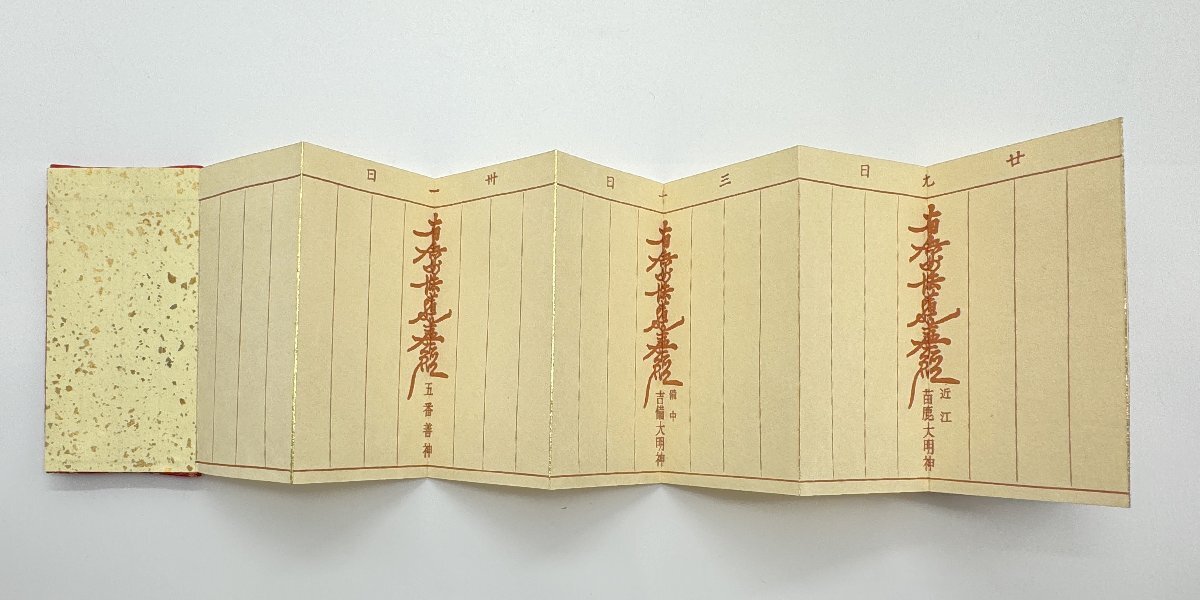 廿九日
南無妙法蓮華経
近江
苗鹿大明神
三十日
南無妙法蓮華経
備中
吉備大明神
卅一日
南無妙法蓮華経
五番善神